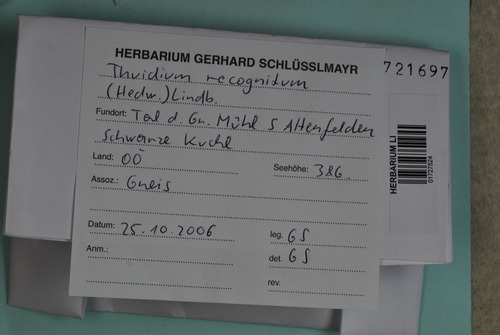 HERBARIUM GERHARD SCHLÜSSLMAYR
721697
Thuidium recognitum
(Hedw.) Lindb.
Fundort: Tal d Gr. Mühl S Altenfelden
Schwarze Kuchl
Land: OÖ
Seehöhe: 386
Assoz.: Gneis
Datum: 25.10.2006
leg. GS
Anm.:
det. GS
rev.
HERBARIUM LI